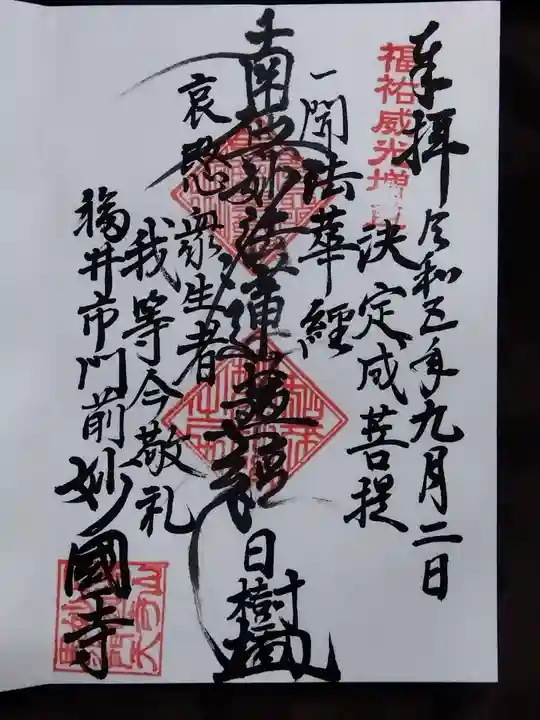 奉拝 令和五年九月二日
福祐威光増
決定成菩提
一聞法華経
南無妙法蓮華経
日樹
哀愍衆生者
我等今敬礼
福井市門前 妙國寺